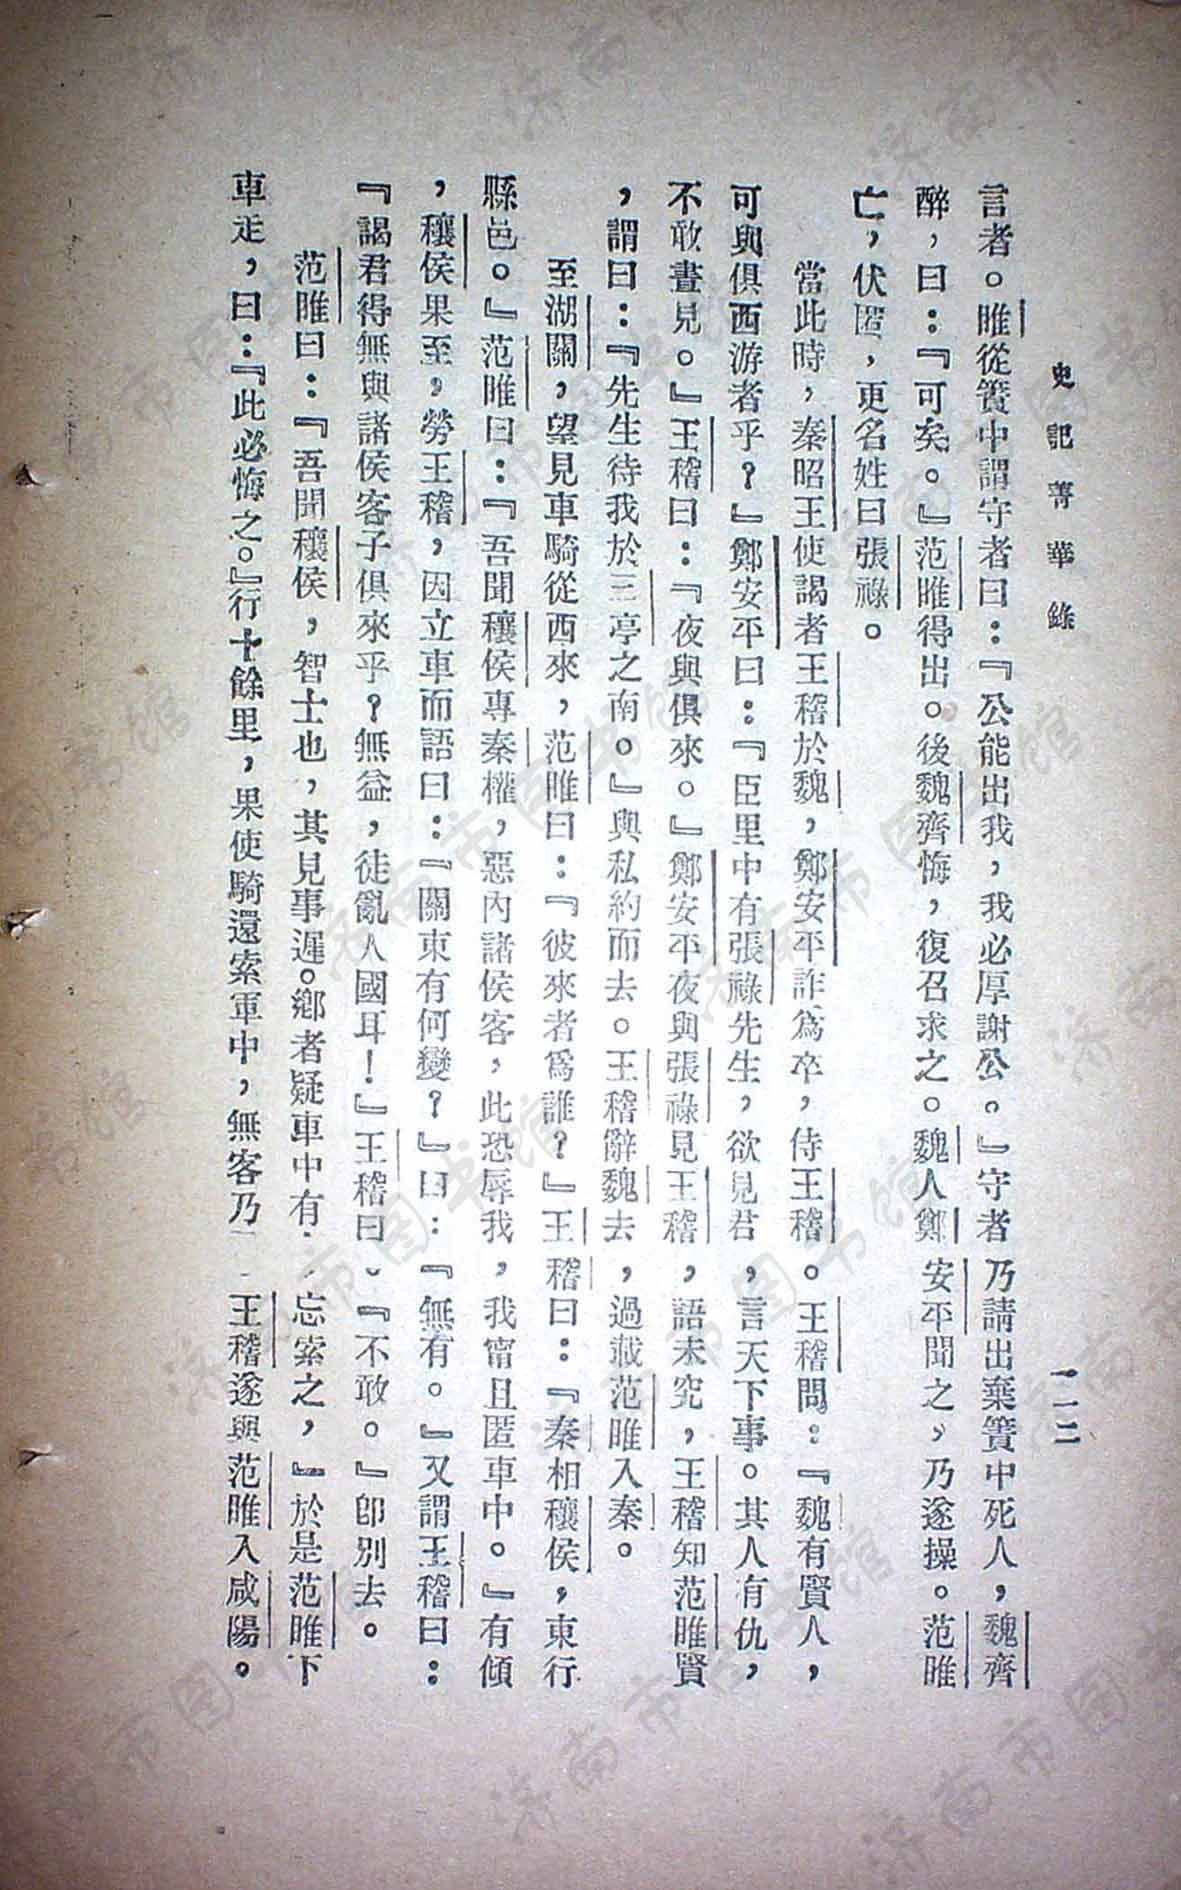 史記菁華錄
一一二
言者。睢從簀中謂守者曰：『公能出我，我必厚謝公。』守者乃請出棄簀中死人，魏齊
醉，曰：『可矣。』范睢得出。後魏齊悔，復召求之。魏人鄭安平聞之，乃遂操。范睢
亡，伏匿，更名姓曰張祿。
當此時，秦昭王使謁者王稽於魏，鄭安平詐爲卒，侍王稽。王稽問：『魏有賢人，
可與俱西游者乎？』鄭安平曰：『臣里中有張祿先生，欲見君，言天下事。其人有仇，
不敢晝見。』王稽曰：『夜與俱來。』鄭安平夜與張祿見王稽，語未究，王稽知范睢賢
，謂曰：『先生待我於三亭之南。』與私約而去。王稽辭魏去，過載范睢入秦。
至湖關，望見車騎從西來，范睢曰：『彼來者爲誰？』王稽曰：『秦相穰侯，東行
縣邑。』范睢曰：『吾聞穰侯專秦權，惡內諸侯客，此恐辱我，我甯且匿車中。』有傾
，穰侯果至，勞王稽，因立車而語曰：『關東有何變？』曰：『無有。』又謂王稽曰：
『謁君得無與諸侯客子俱來乎？無益，徒亂人國耳！』王稽曰：『不敢。』卽別去。
范睢曰：『吾聞穰侯，智士也，其見事遲。鄕者疑車中有，忘索之，』於是范睢下
車走，曰：『此必悔之。』行十餘里，果使騎還索軍中，無客乃王稽遂與范睢入咸陽。
济南市图书馆